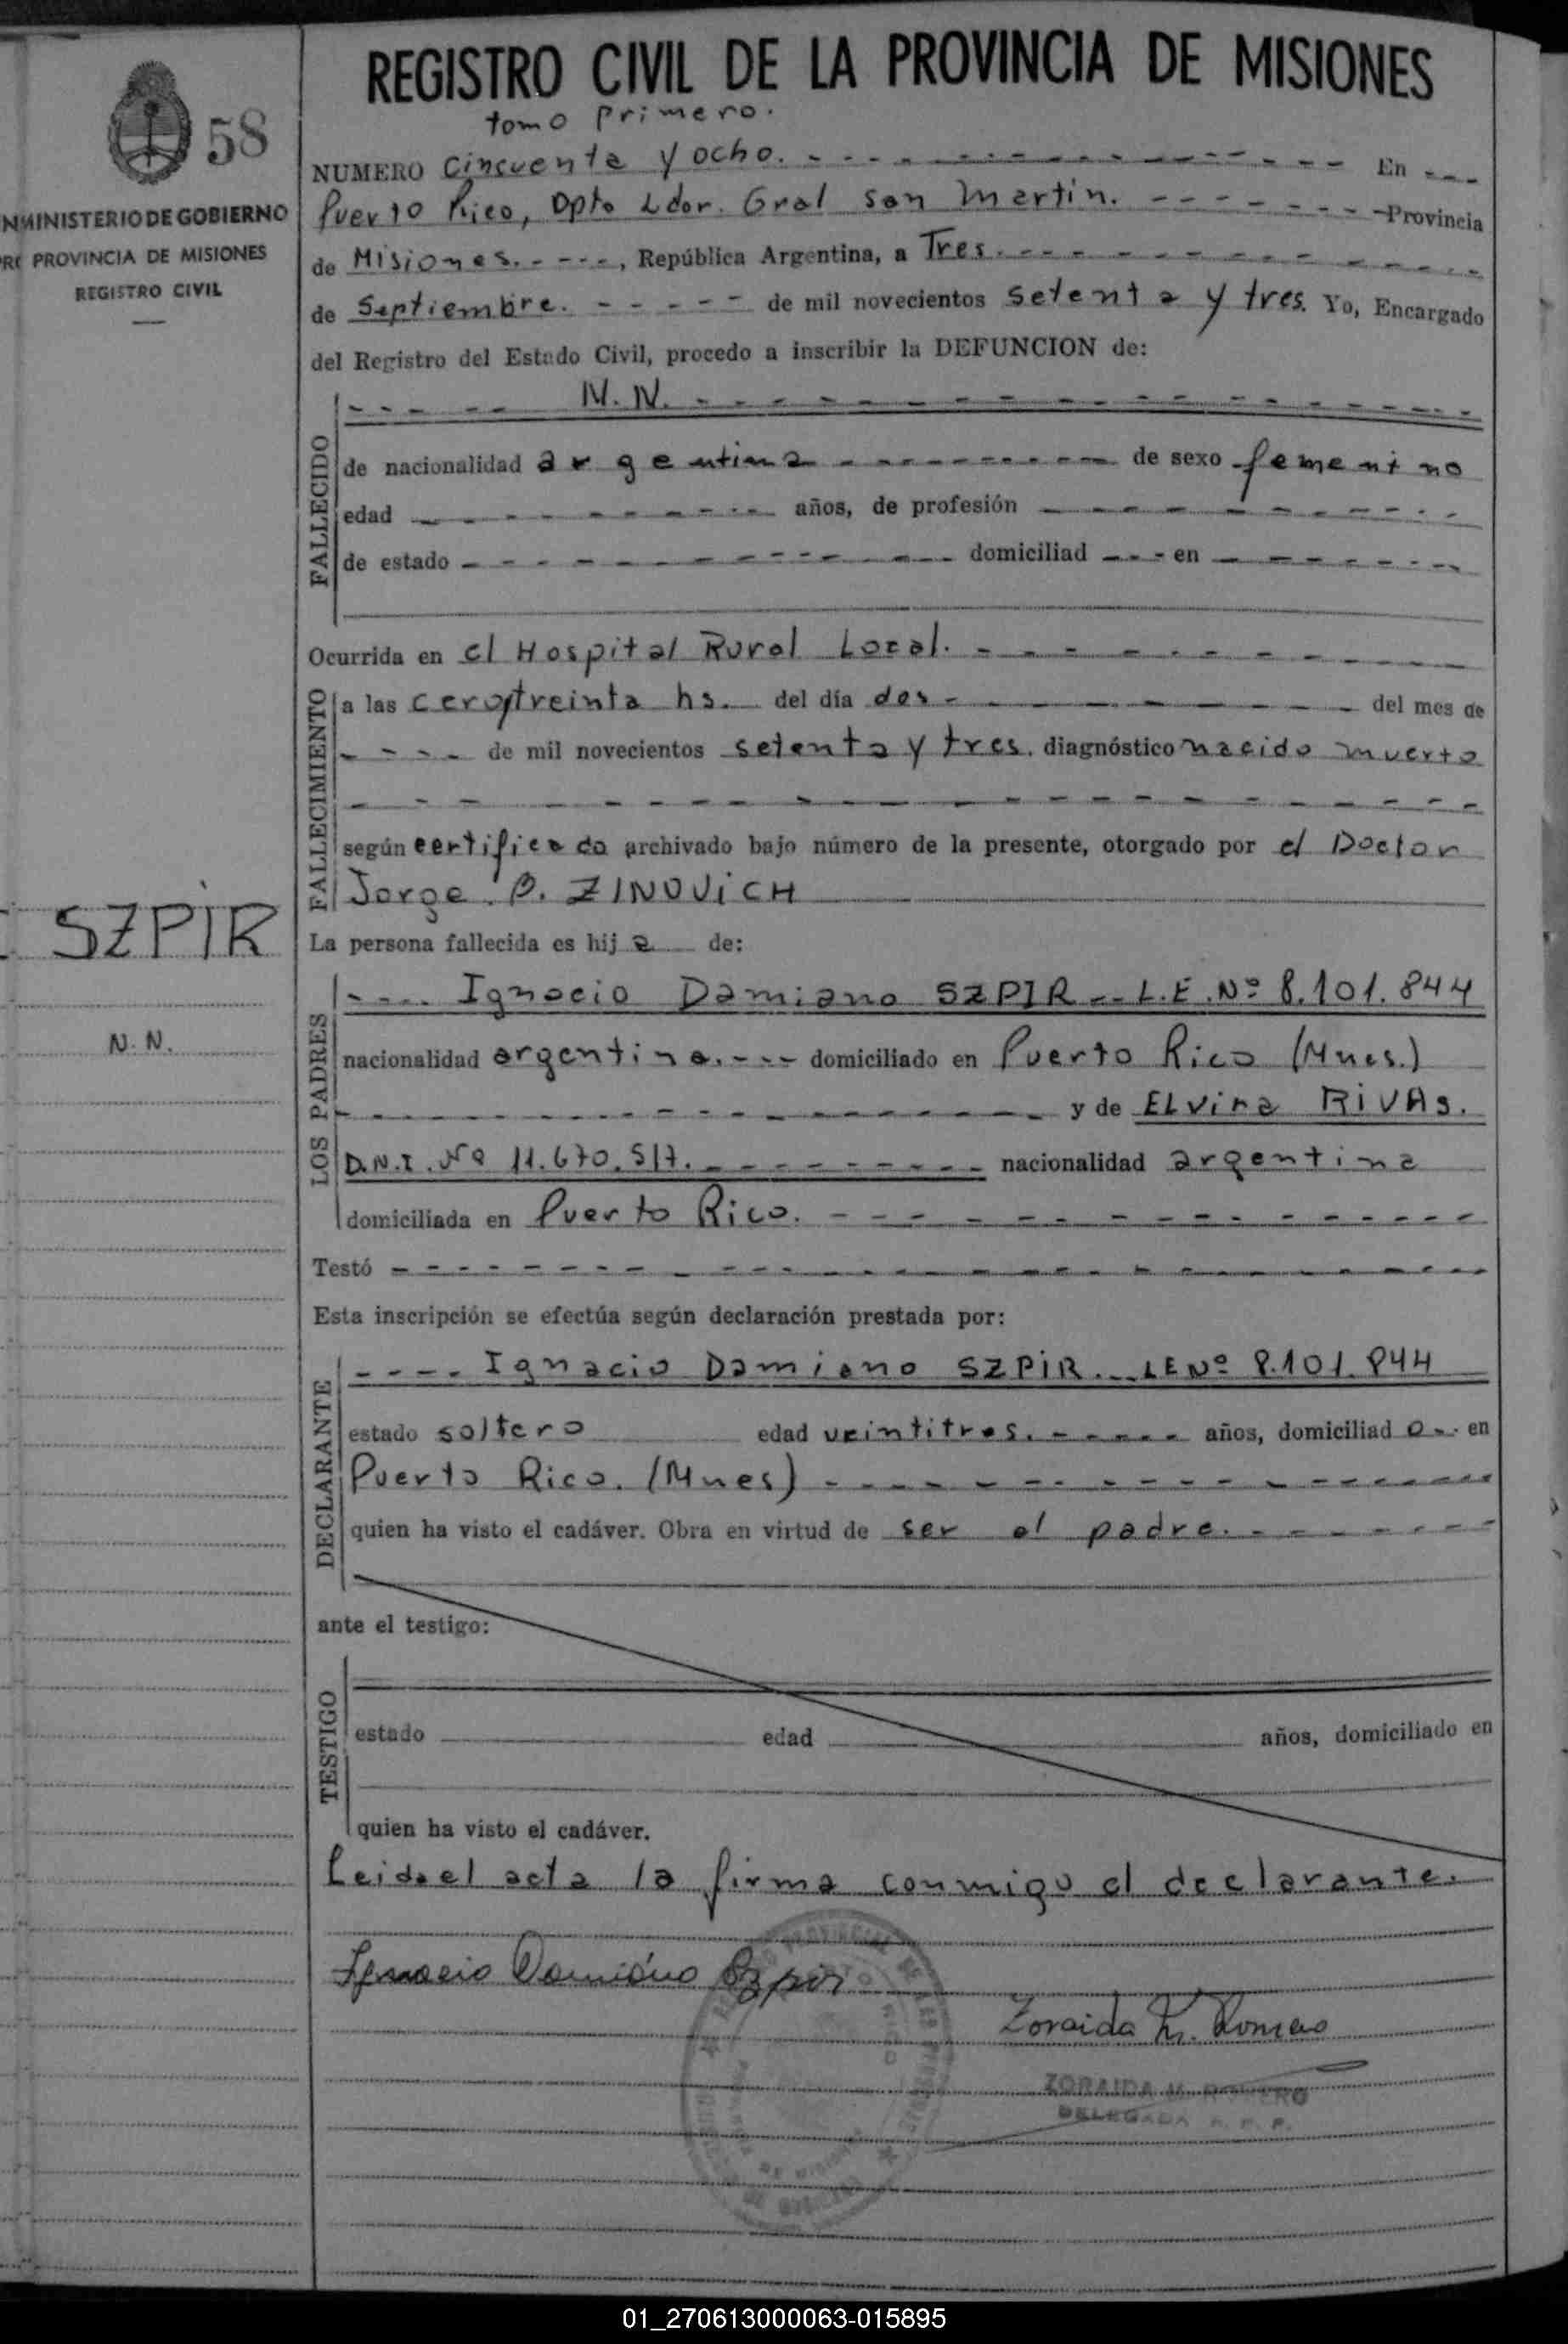 REGISTRO CIVIL DE LA PROVINCIA DE MISIONES
tomo primero.
58
NUMERO cincuenta y ocho. En
Puerto Rico, Dpto Ldor. Gral San Martin. Provincia
de Misiones. , República Argentina, a Tres.
de Septiembre. de mil novecientos setenta y tres. Yo, Encargado
del Registro del Estado Civil, procedo a inscribir la DEFUNCION de:
MINISTERIO DE GOBIERNO
PROVINCIA DE MISIONES
REGISTRO CIVIL
SZPIR
N. N.
FALLECIDO
N. N.
de nacionalidad argentina de sexo femenino
edad años, de profesión
de estado domiciliad en
Ocurrida en el Hospital Rural Local.
FALLECIMIENTO
a las cero treinta hs. del día dos del mes de
de mil novecientos setenta y tres. diagnóstico nacido muerto
según certificado archivado bajo número de la presente, otorgado por el Doctor
Jorge. B. ZINOVICH
La persona fallecida es hij a de:
LOS PADRES
Ignacio Damiano SZPIR L.E. Nº 8.101.844
nacionalidad argentina. domiciliado en Puerto Rico (Mnes.)
y de ELvira RIVAS.
D.N.I. Nº 11.670.517. nacionalidad argentina
domiciliada en Puerto Rico.
Testó
Esta inscripción se efectúa según declaración prestada por:
DECLARANTE
Ignacio Damiano SZPIR. LE Nº 8.101.844
estado soltero edad veintitres. años, domiciliad o en
Puerto Rico. (Mnes)
quien ha visto el cadáver. Obra en virtud de ser el padre.
ante el testigo:
TESTIGO
estado edad años, domiciliado en
quien ha visto el cadáver.
Leida el acta la firma conmigo el declarante.
Ignacio Damiano Szpir
Zoraida M. Romero
ZORAIDA M. ROMERO
DELEGADA R. P. P.
01_270613000063-015895